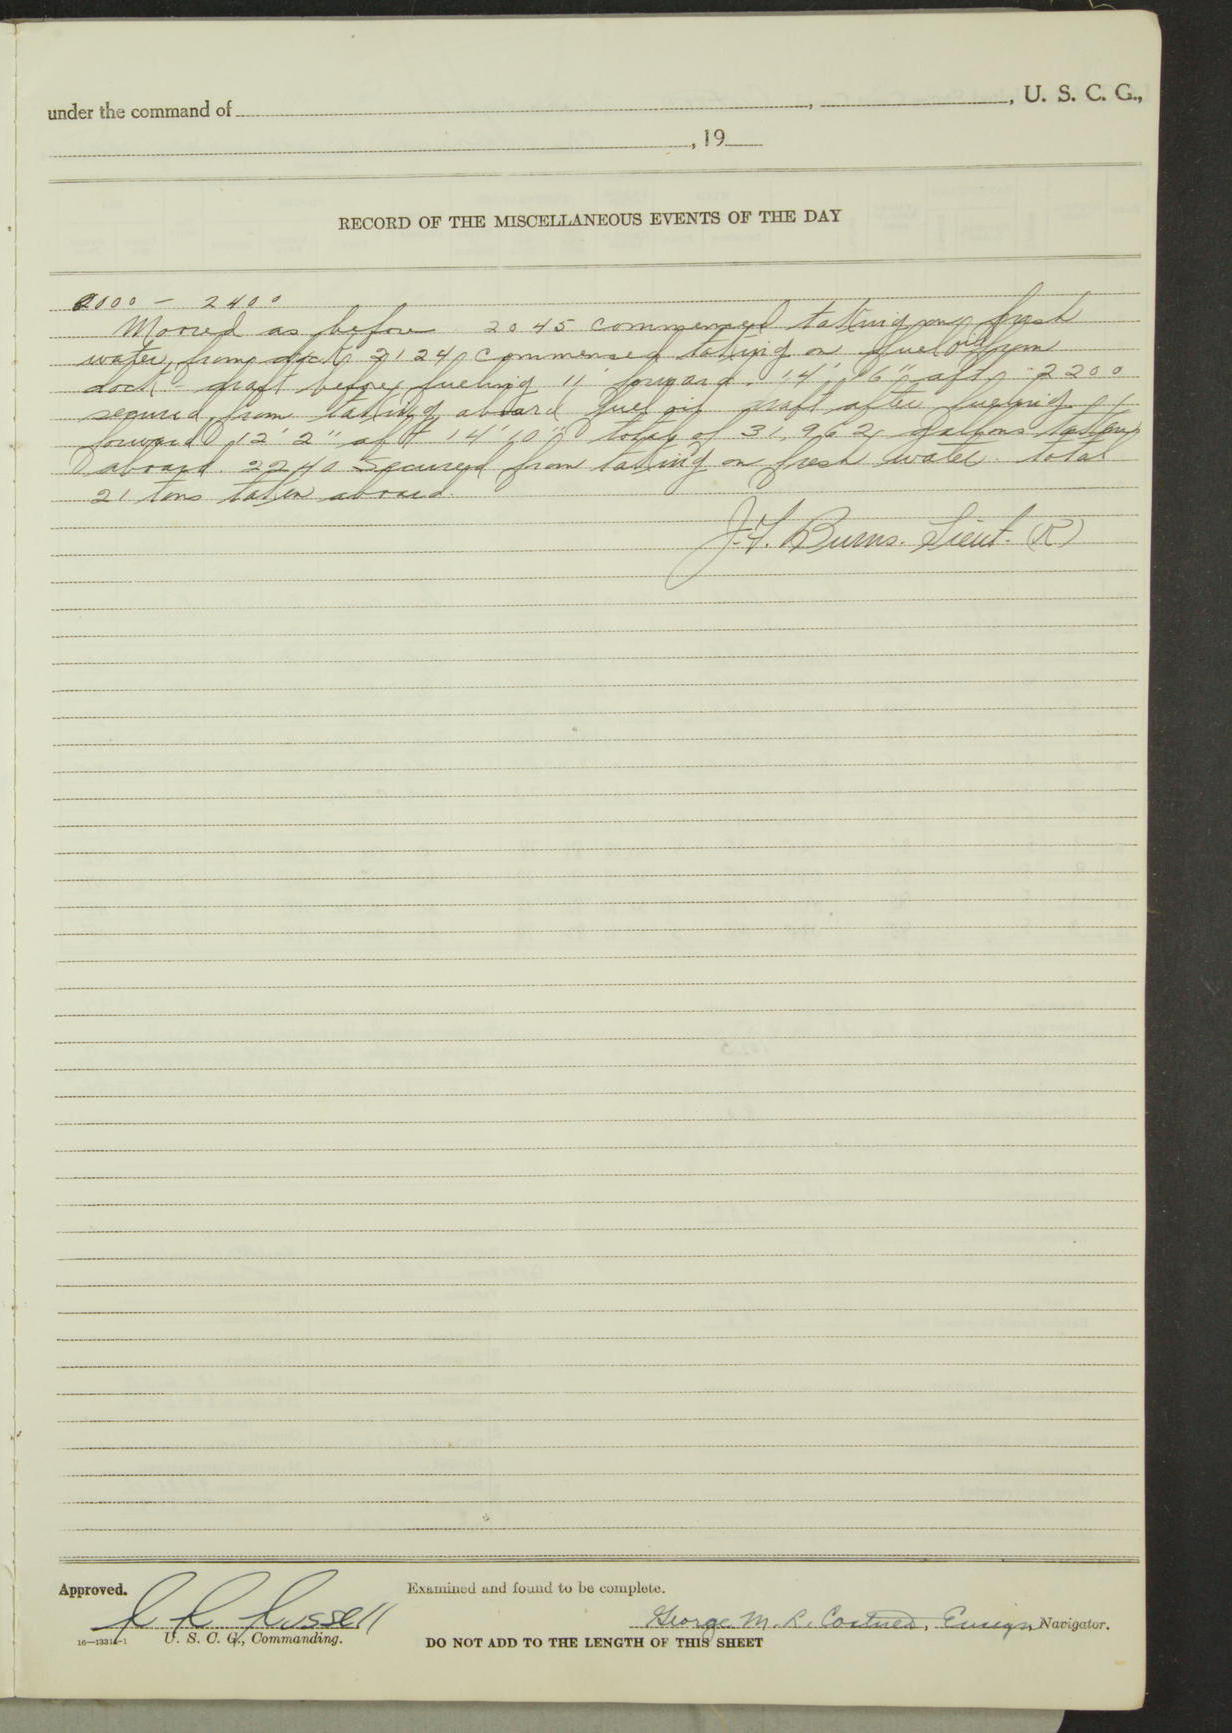 under the command of , , U. S. C. G.,
, 19
RECORD OF THE MISCELLANEOUS EVENTS OF THE DAY
2000 - 2400
Moored as before 2045 commenced taking on fresh
water from dock 2124 commenced taking on fuel oil from
dock draft before fueling 11' forward. 14' 6" aft. 2200
secured from taking aboard fuel oil draft after fueling
forward 12' 2" aft 14' 10" total of 31,962 gallons taken
aboard. 2240 Secured from taking on fresh water. total
21 tons taken aboard.
J. F. Burns. Lieut. (R)
Approved. Examined and found to be complete.
Russell
George M. R. Ensign Navigator.
U. S. C. G., Commanding.
DO NOT ADD TO THE LENGTH OF THIS SHEET